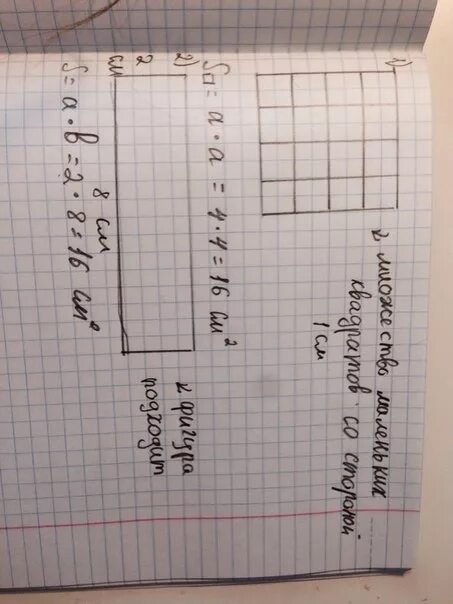 1)
множество маленьких
квадратов со стороной
1 см
S□ = a · a = 4 · 4 = 16 см²
2)
2
см
фигура
подходит
8 см
S = a · b = 2 · 8 = 16 см²